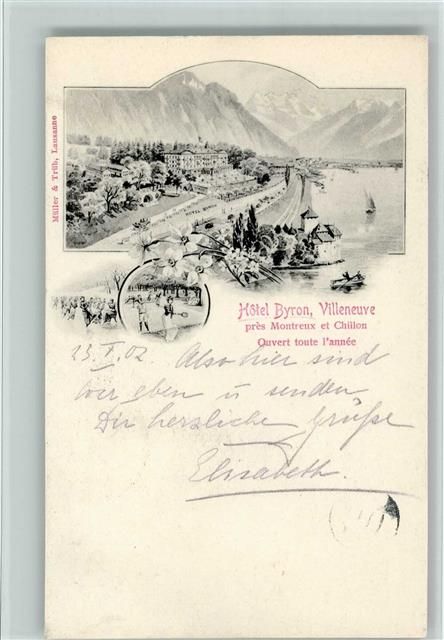 Müller & Trüb, Lausanne
HOTEL BYRON
Hôtel Byron, Villeneuve
près Montreux et Chillon
Ouvert toute l'année
23. V. 02. Also hier sind
wir eben u senden
Dir herzliche Grüße
Elisabeth.